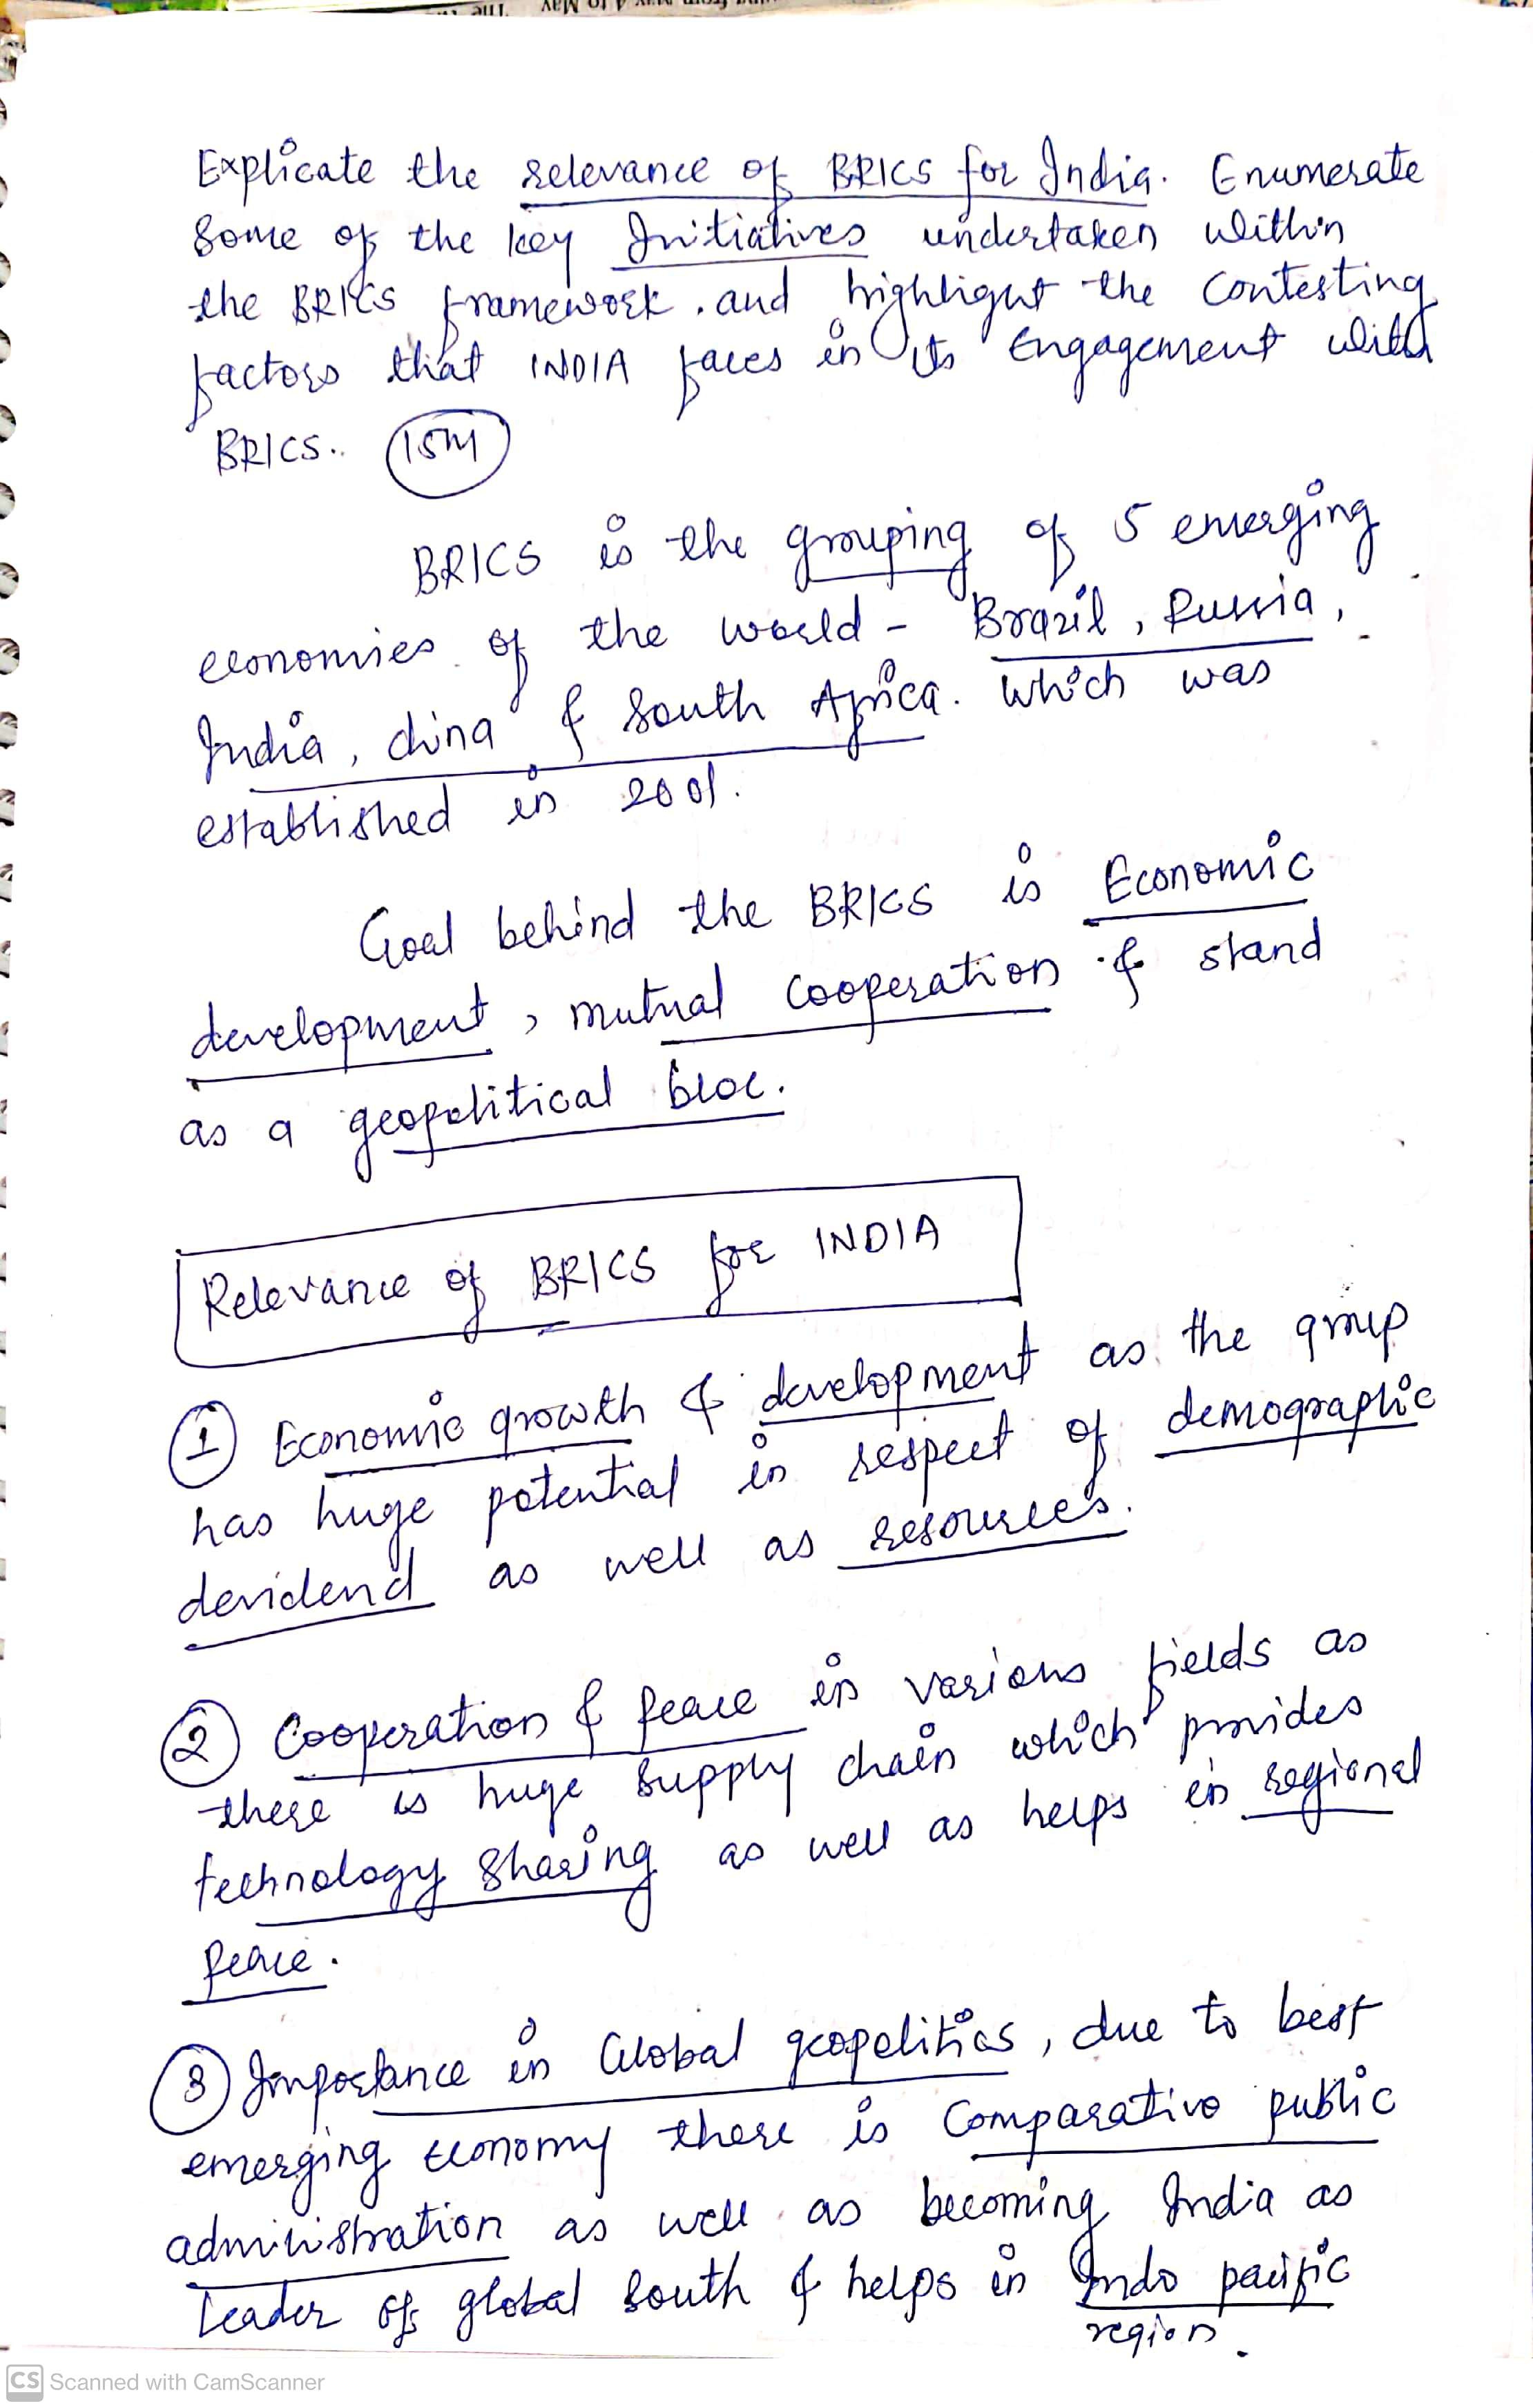 Explicate the relevance of BRICS for India. Enumerate
Some of the key Initiatives undertaken within
the BRICS framework. and highlight the Contesting
factors that INDIA faces in its Engagement with
BRICS.. 15M
BRICS is the grouping of 5 emerging
economies of the world - Brazil, Russia,
India, china & South Africa. Which was
established in 2001.
Goal behind the BRICS is Economic
development, mutual Cooperation & stand
as a geopolitical bloc.
Relevance of BRICS for INDIA
1 Economic growth & development as the group
has huge potential in respect of demographic
devidend as well as resources.
2 Cooperation & Peace in various fields as
there is huge supply chain which provides
technology sharing as well as helps in regional
Peace.
3 Importance in Global geopolitics, due to best
emerging economy there is Comparative public
administration as well as becoming India as
leader of global South & helps in Indo pacific
region.
CS Scanned with CamScanner